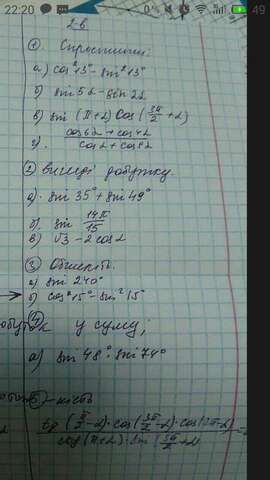 22:20
49
2-6
① Спростити:
а) cos²15° - sin²15°
б) sin5α - sin2α
в) sin(π+α) cos(3π/2 + α)
г) (cos6α + cos4α)/(cosα + cos8α)
② вигляді добутку.
а) sin35° + sin49°
б) sin 14π/15
в) √3 - 2cosα
③ Обчисліть.
а) sin240°
б) cos²15° - sin²15°
④ у суму;
а) sin48° · sin74°
tg(π/2 - α) · cos(3π/2 - α) · cos(2π - α)
ctg(π+α) · sin(3π/2 + α) =